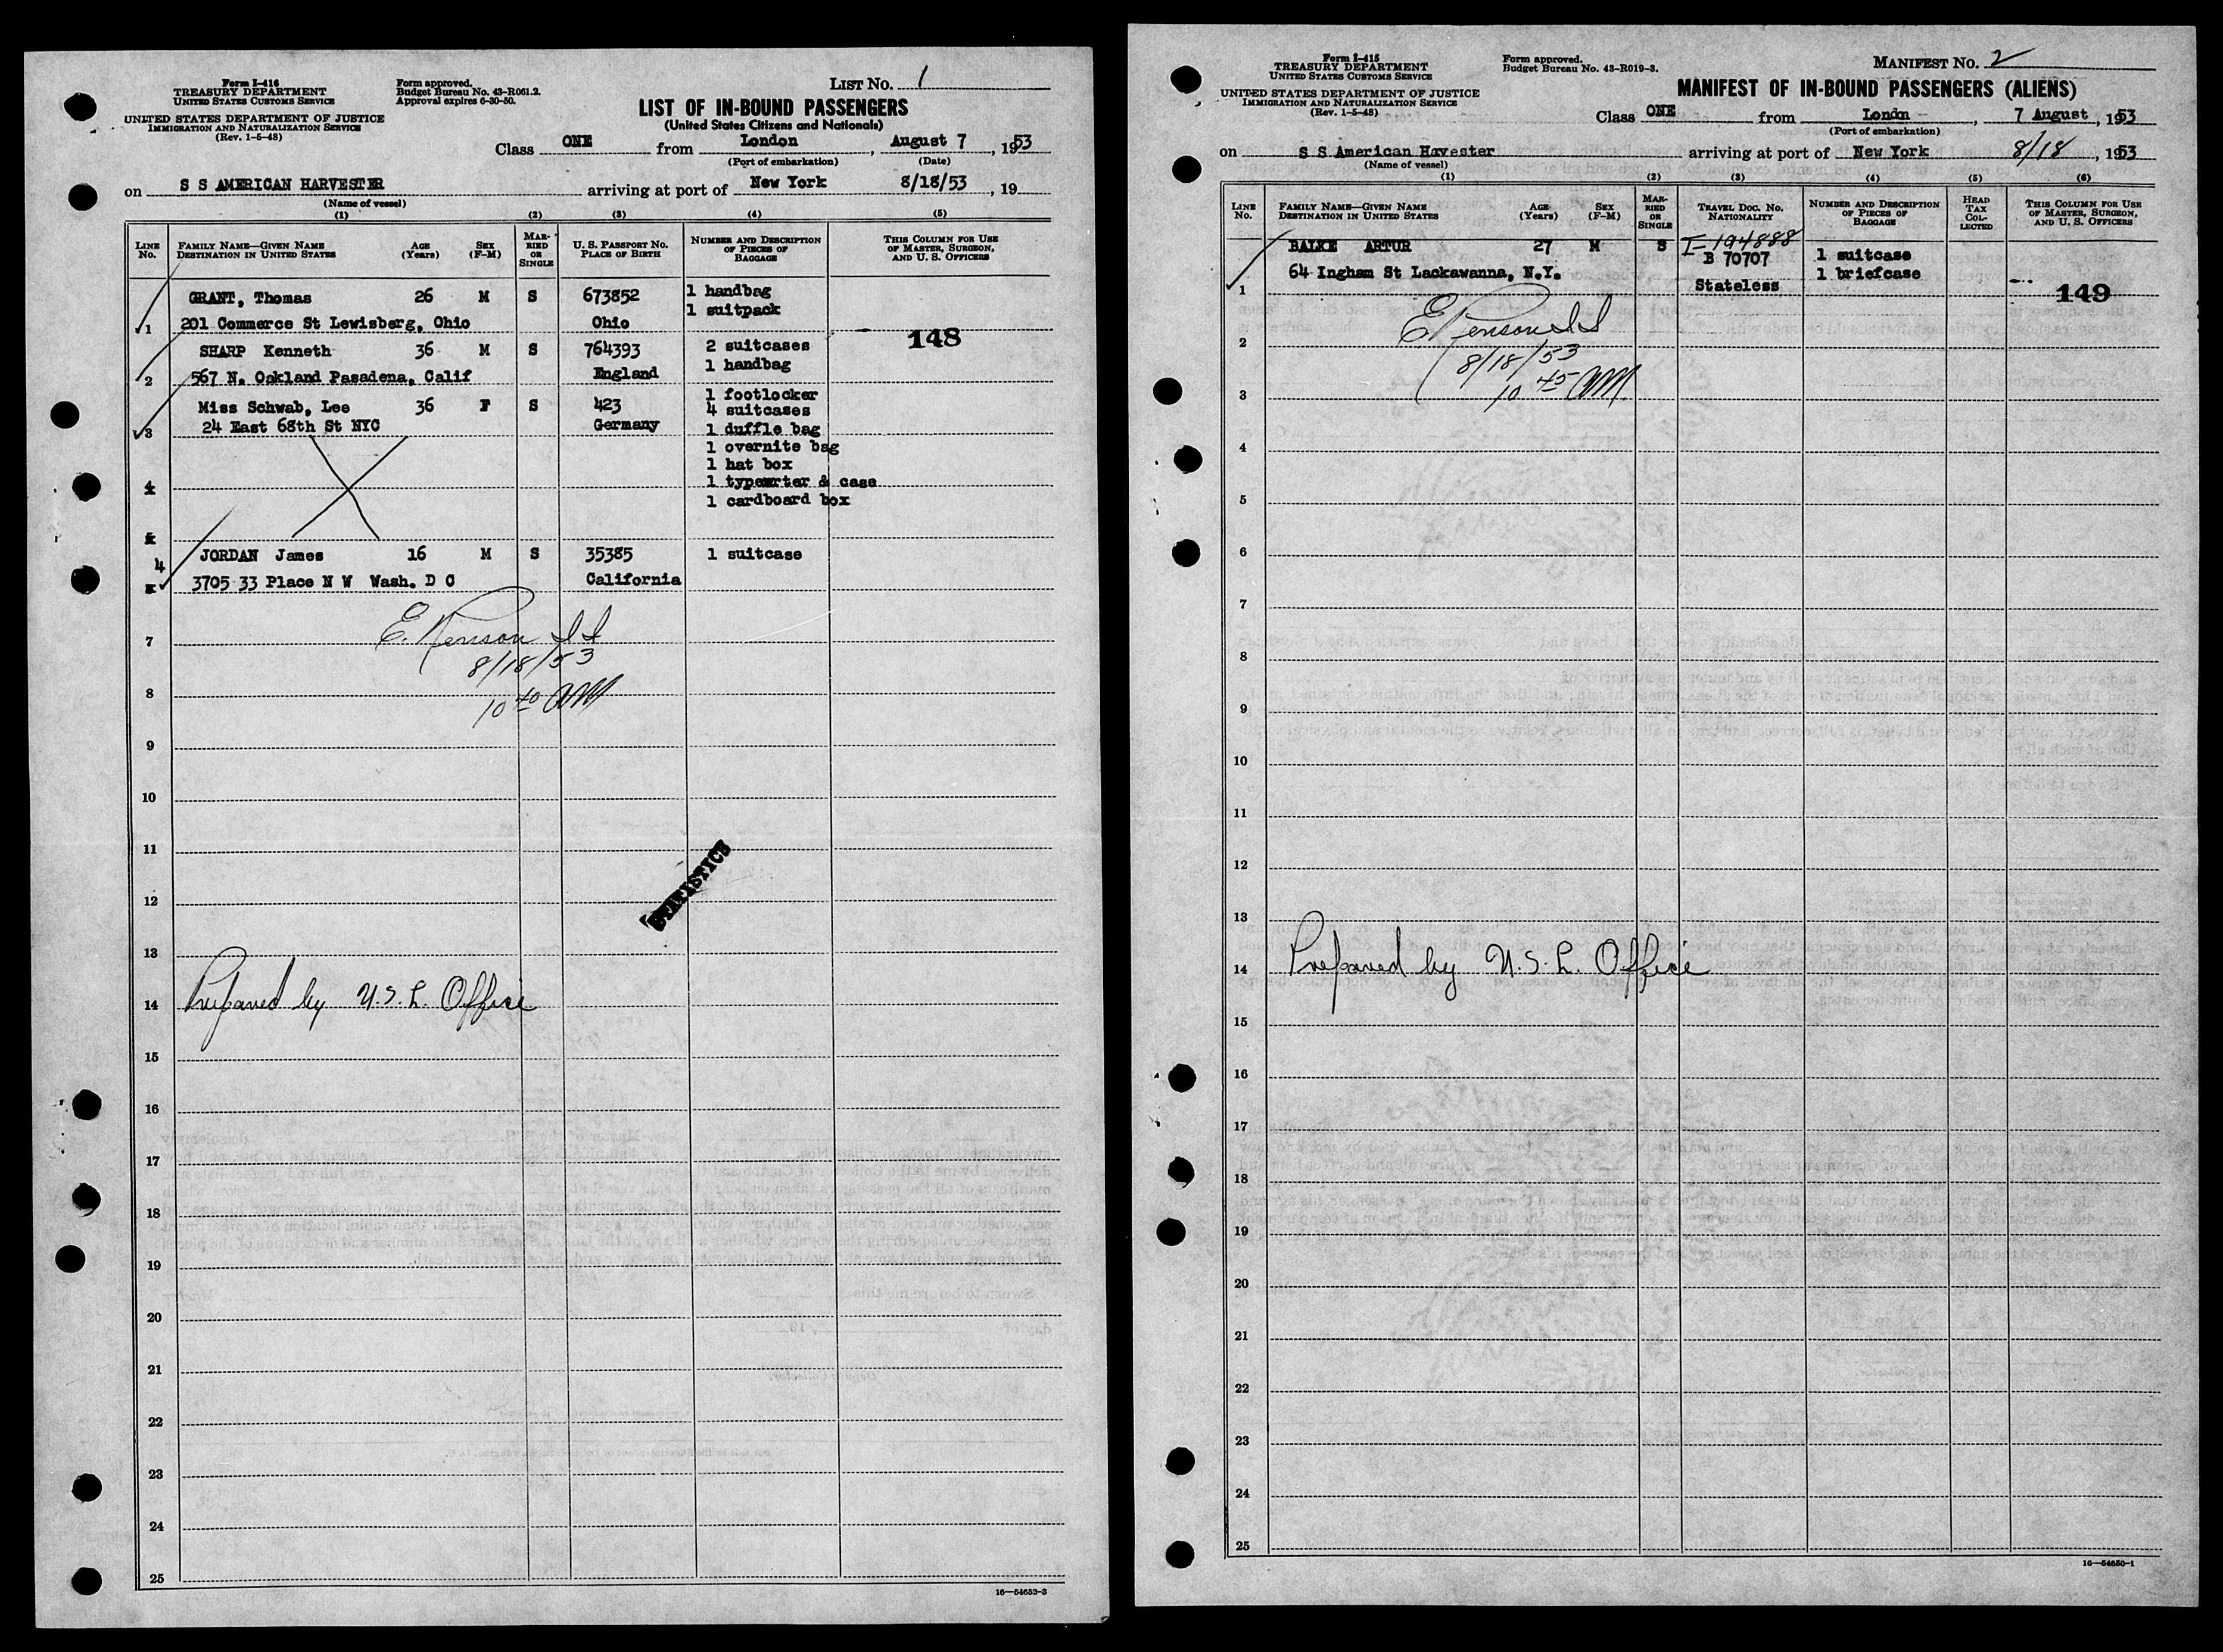 Form I-416
TREASURY DEPARTMENT
UNITED STATES CUSTOMS SERVICE
UNITED STATES DEPARTMENT OF JUSTICE
IMMIGRATION AND NATURALIZATION SERVICE
(Rev. 1-5-48)
Form approved.
Budget Bureau No. 43-R061.2.
Approval expires 6-30-50.
LIST NO. 1
LIST OF IN-BOUND PASSENGERS
(United States Citizens and Nationals)
Class ONE from London, August 7, 1953
(Port of embarkation) (Date)
on S S AMERICAN HARVESTER arriving at port of New York 8/18/53, 19
(Name of vessel)
(1) (2) (3) (4) (5)
LINE NO. FAMILY NAME—GIVEN NAME DESTINATION IN UNITED STATES AGE (YEARS) SEX (F-M) MARRIED OR SINGLE U. S. PASSPORT NO. PLACE OF BIRTH NUMBER AND DESCRIPTION OF PIECES OF BAGGAGE THIS COLUMN FOR USE OF MASTER, SURGEON, AND U. S. OFFICERS
GRANT, Thomas 26 M S 673852 1 handbag
1 suitpack
1 201 Commerce St Lewisberg, Ohio Ohio
148
SHARP Kenneth 36 M S 764393 2 suitcases
1 handbag
2 567 N. Oakland Pasadena, Calif England
1 footlocker
Miss Schwab, Lee 36 F S 423 4 suitcases
3 24 East 68th St NYC Germany 1 duffle bag
1 overnite bag
1 hat box
4 1 typewrter & case
1 cardboard box
JORDAN James 16 M S 35385 1 suitcase
4 3705 33 Place N W Wash. D C California
E. Kenson I I
7
8/18/53
8
10 40 AM
9
10
11
STATISTICS
12
13
14 Prepared by U.S.L. Office
15
16
17
18
19
20
21
22
23
24
25
16—54652-3
Form I-415
TREASURY DEPARTMENT
UNITED STATES CUSTOMS SERVICE
UNITED STATES DEPARTMENT OF JUSTICE
IMMIGRATION AND NATURALIZATION SERVICE
(Rev. 1-5-48)
Form approved.
Budget Bureau No. 43-R019-3.
MANIFEST NO. 2
MANIFEST OF IN-BOUND PASSENGERS (ALIENS)
Class ONE from Londn, 7 August, 1953
(Port of embarkation)
on S S American Havester arriving at port of New York 8/18, 1953
(Name of vessel)
(1) (2) (3) (4) (5) (6)
LINE NO. FAMILY NAME—GIVEN NAME DESTINATION IN UNITED STATES AGE (YEARS) SEX (F-M) MARRIED OR SINGLE TRAVEL DOC. NO. NATIONALITY NUMBER AND DESCRIPTION OF PIECES OF BAGGAGE HEAD TAX COLLECTED THIS COLUMN FOR USE OF MASTER, SURGEON, AND U. S. OFFICERS
BALKE ARTUR 27 M S I-194888
B 70707 1 suitcase
64 Ingham St Lackawanna, N.Y. 1 briefcase
1 Stateless 149
E Kenson I I
2
8/18/53
3 10 45 AM
4
5
6
7
8
9
10
11
12
13
14 Prepared by U.S.L. Office
15
16
17
18
19
20
21
22
23
24
25
16—54650-1